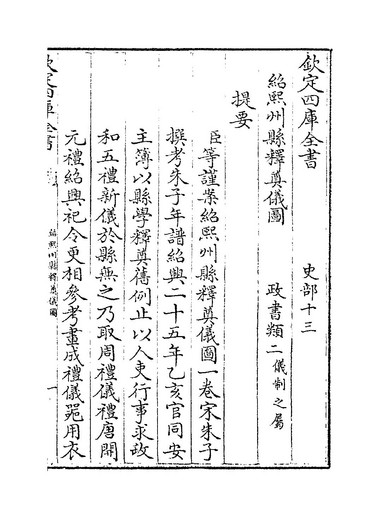 欽定四庫全書　　　　史部十三
紹熙州縣釋奠儀圖　　政書類二儀制之屬
提要
臣等謹案紹熙州縣釋奠儀圖一卷宋朱子
撰考朱子年譜紹興二十五年乙亥官同安
主簿以縣學釋奠舊例止以人吏行事求政
和五禮新儀於縣無之乃取周禮儀禮唐開
元禮紹興祀令更相參考畫成禮儀器用衣
欽定四庫全書
紹熙州縣釋奠儀圖
一